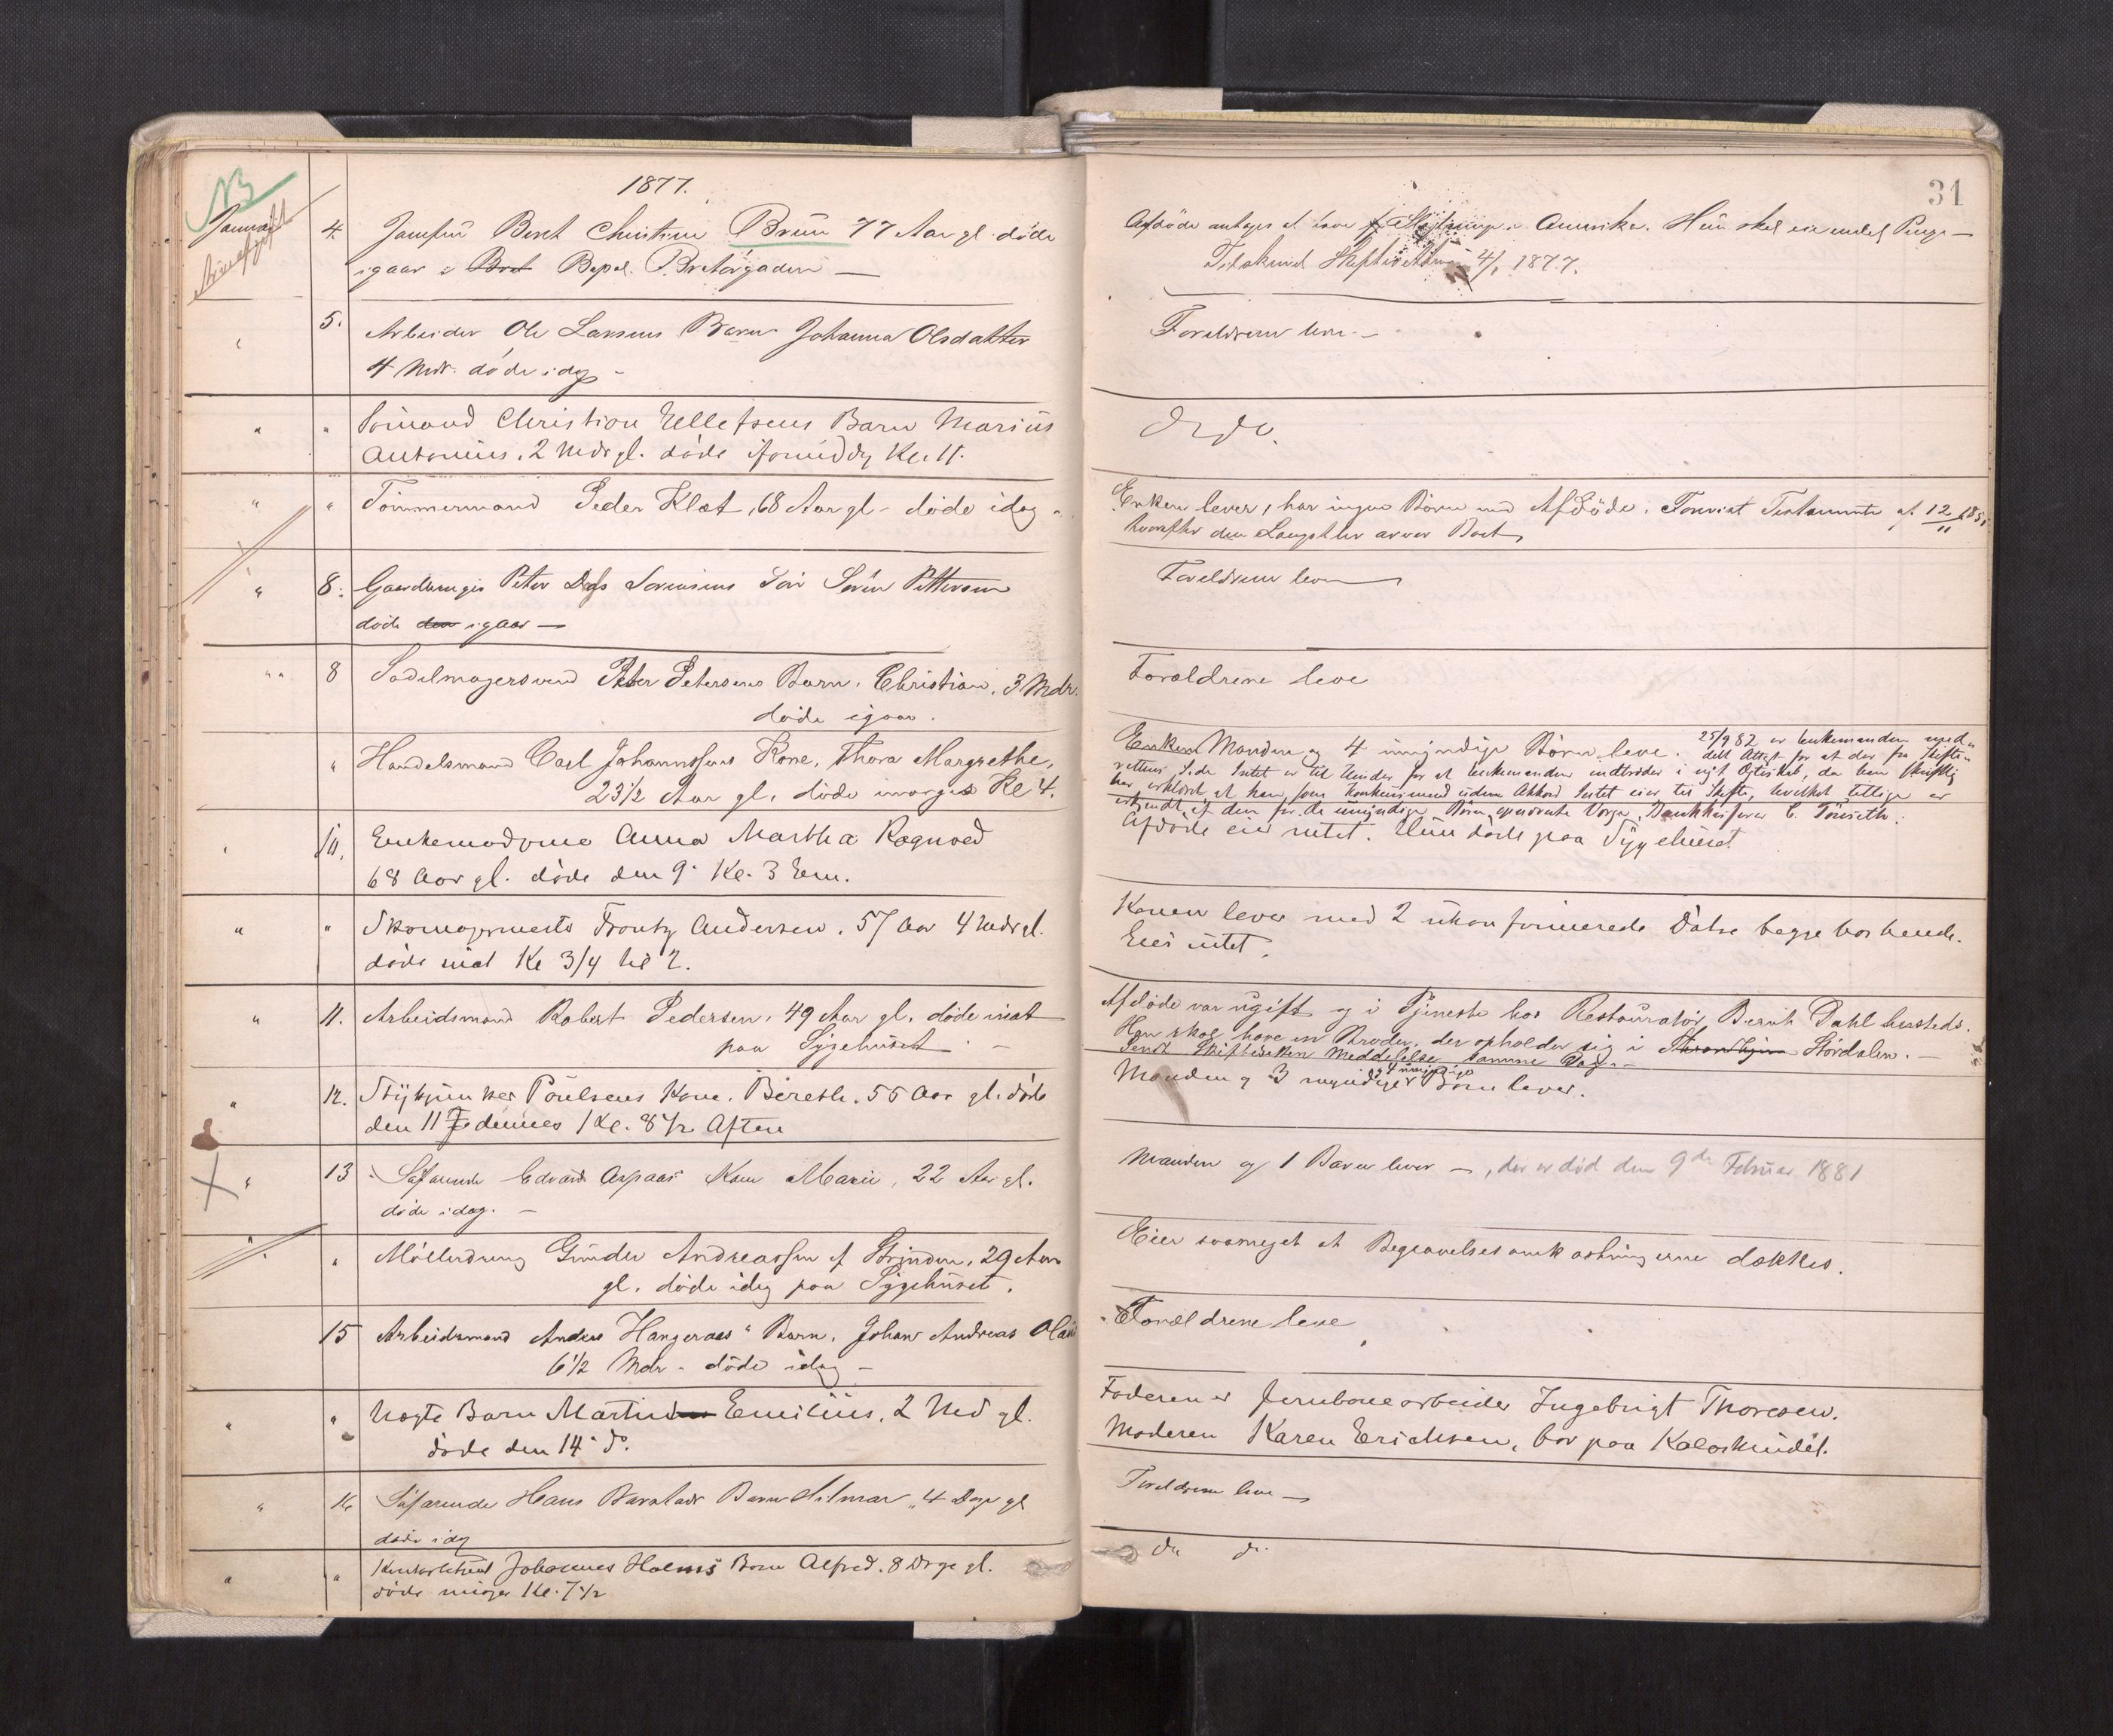 1877.
NB
Januar
4. Jomfru Beret Christine Bruun 77 Aar gl. døde
igaar i Bret Bapal. Bratørgaden —
5. Arbeider Ole Larsens Barn Johanna Olsdatter
4 Mdr. døde idag -
" " Sømand Christian Ellefsens Barn Marius
Antonius, 2 Mdr gl. døde iformiddag Kl. 11.
" " Tømmermand Peder Klæt, 68 Aar gl - døde idag -
" 8. Gaardbruger Peter Sørensens Søn Søren Pettersen
døde den igaar —
" " 8 Sadelmagersvend Peter Petersens Barn, Christian, 3 Mdr.
døde igaar.
" Handelsmand Carl Johannssens Kone, Thora Margrethe,
23 1/2 Aar gl. døde imorges Kl 4.
" 10. Enkemadame Anna Martha Rognvad
68 Aar gl. døde den 9' Kl. 3 Em.
" " Skomagermester Frantz Andersen, 57 Aar 4 Mdr gl.
døde inat Kl 3/4 til 2.
" 11. Arbeidsmand Robert Pedersen, 49 Aar gl. døde inat
paa Sygehuset. —
" 12. Stykjunker Poulsens Kone, Bereth, 55 Aar gl. døde
den 11 dennes Kl. 8 1/2 Aften
" 13 Søfarende Edvard Aspaas Kone Marie, 22 Aar gl.
døde idag. —
" " Møllerdreng Gunder Andreassen af Strinden, 29 Aar
gl. døde idag paa Sygehuset.
15 Arbeidsmand Anders Hangeraas' Barn, Johan Andreas Olai
6 1/2 Mdr - døde idag —
" " Uægte Barn Martin Emilius, 2 Md gl.
døde den 14' d°.
" 16 Søfarende Hans Barn Hilmar, 4 Dage gl
døde idag
" " Johannes Holms Barn Alfred, 8 Dage gl.
døde imorges Kl. 7 1/2
31
Afdøde antages at have i Amerika. Hun skal eie endel Penge —
Tilskrevet Skifteretten 4/1 1877.
Forældrene leve —
do do.
Enken lever, har ingen Børn med Afdøde. Forevist Testamente af 12/11
hvorefter den Længstlev. arver Boet,
Forældrene leve —
Forældrene leve
Enken Manden og 4 umyndige Børn leve. 25/9 82 er Enkemanden med-
delt Attest for at der fra Skifte-
rettens Side Intet er til Hinder for at Enkemanden indtræder i nyt Ægteskab, da han skriftlig
har erklæret at han som Konkursmand uden Akkord Intet eier til Skifte, hvilket tillige er
erkjendt af den for de umyndige Børn opnævnte Værge, Bankkasserer C. Tønseth.
Afdøde eier intet. Hun døde paa Sygehuset
Konen lever med 2 ukonfirmerede Døtre begge hos hende.
Eier intet.
Afdøde var ugift og i Tjeneste hos Restauratør Bernh Dahl hersteds.
Han skal have en Broder, der opholder sig i Throndhjem Stördalen. —
Sendt Skifteretten Meddelelse samme Dag. —
Manden og 3 myndige og 4 umyndige Børn lever.
Manden og 1 Barn lever —, der er død den 9de Februar 1881
Eier saameget at Begravelsesomkostningerne dækkes.
Forældrene leve
Faderen er Jernbanearbeider Ingebrigt Thoresen.
Moderen Karen Erichsen, bor paa Kalvskindet.
Forældrene leve —
do do.